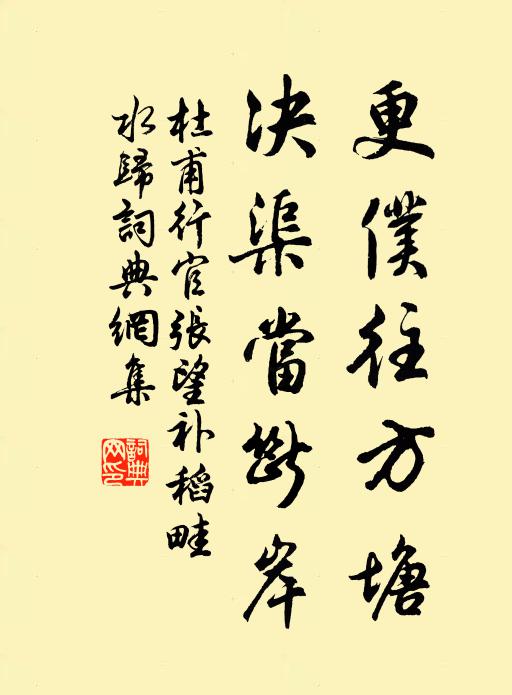 更僕往方塘
決渠當斷岸
杜甫行官張望补稻畦
水歸詞典網集
詞典網印